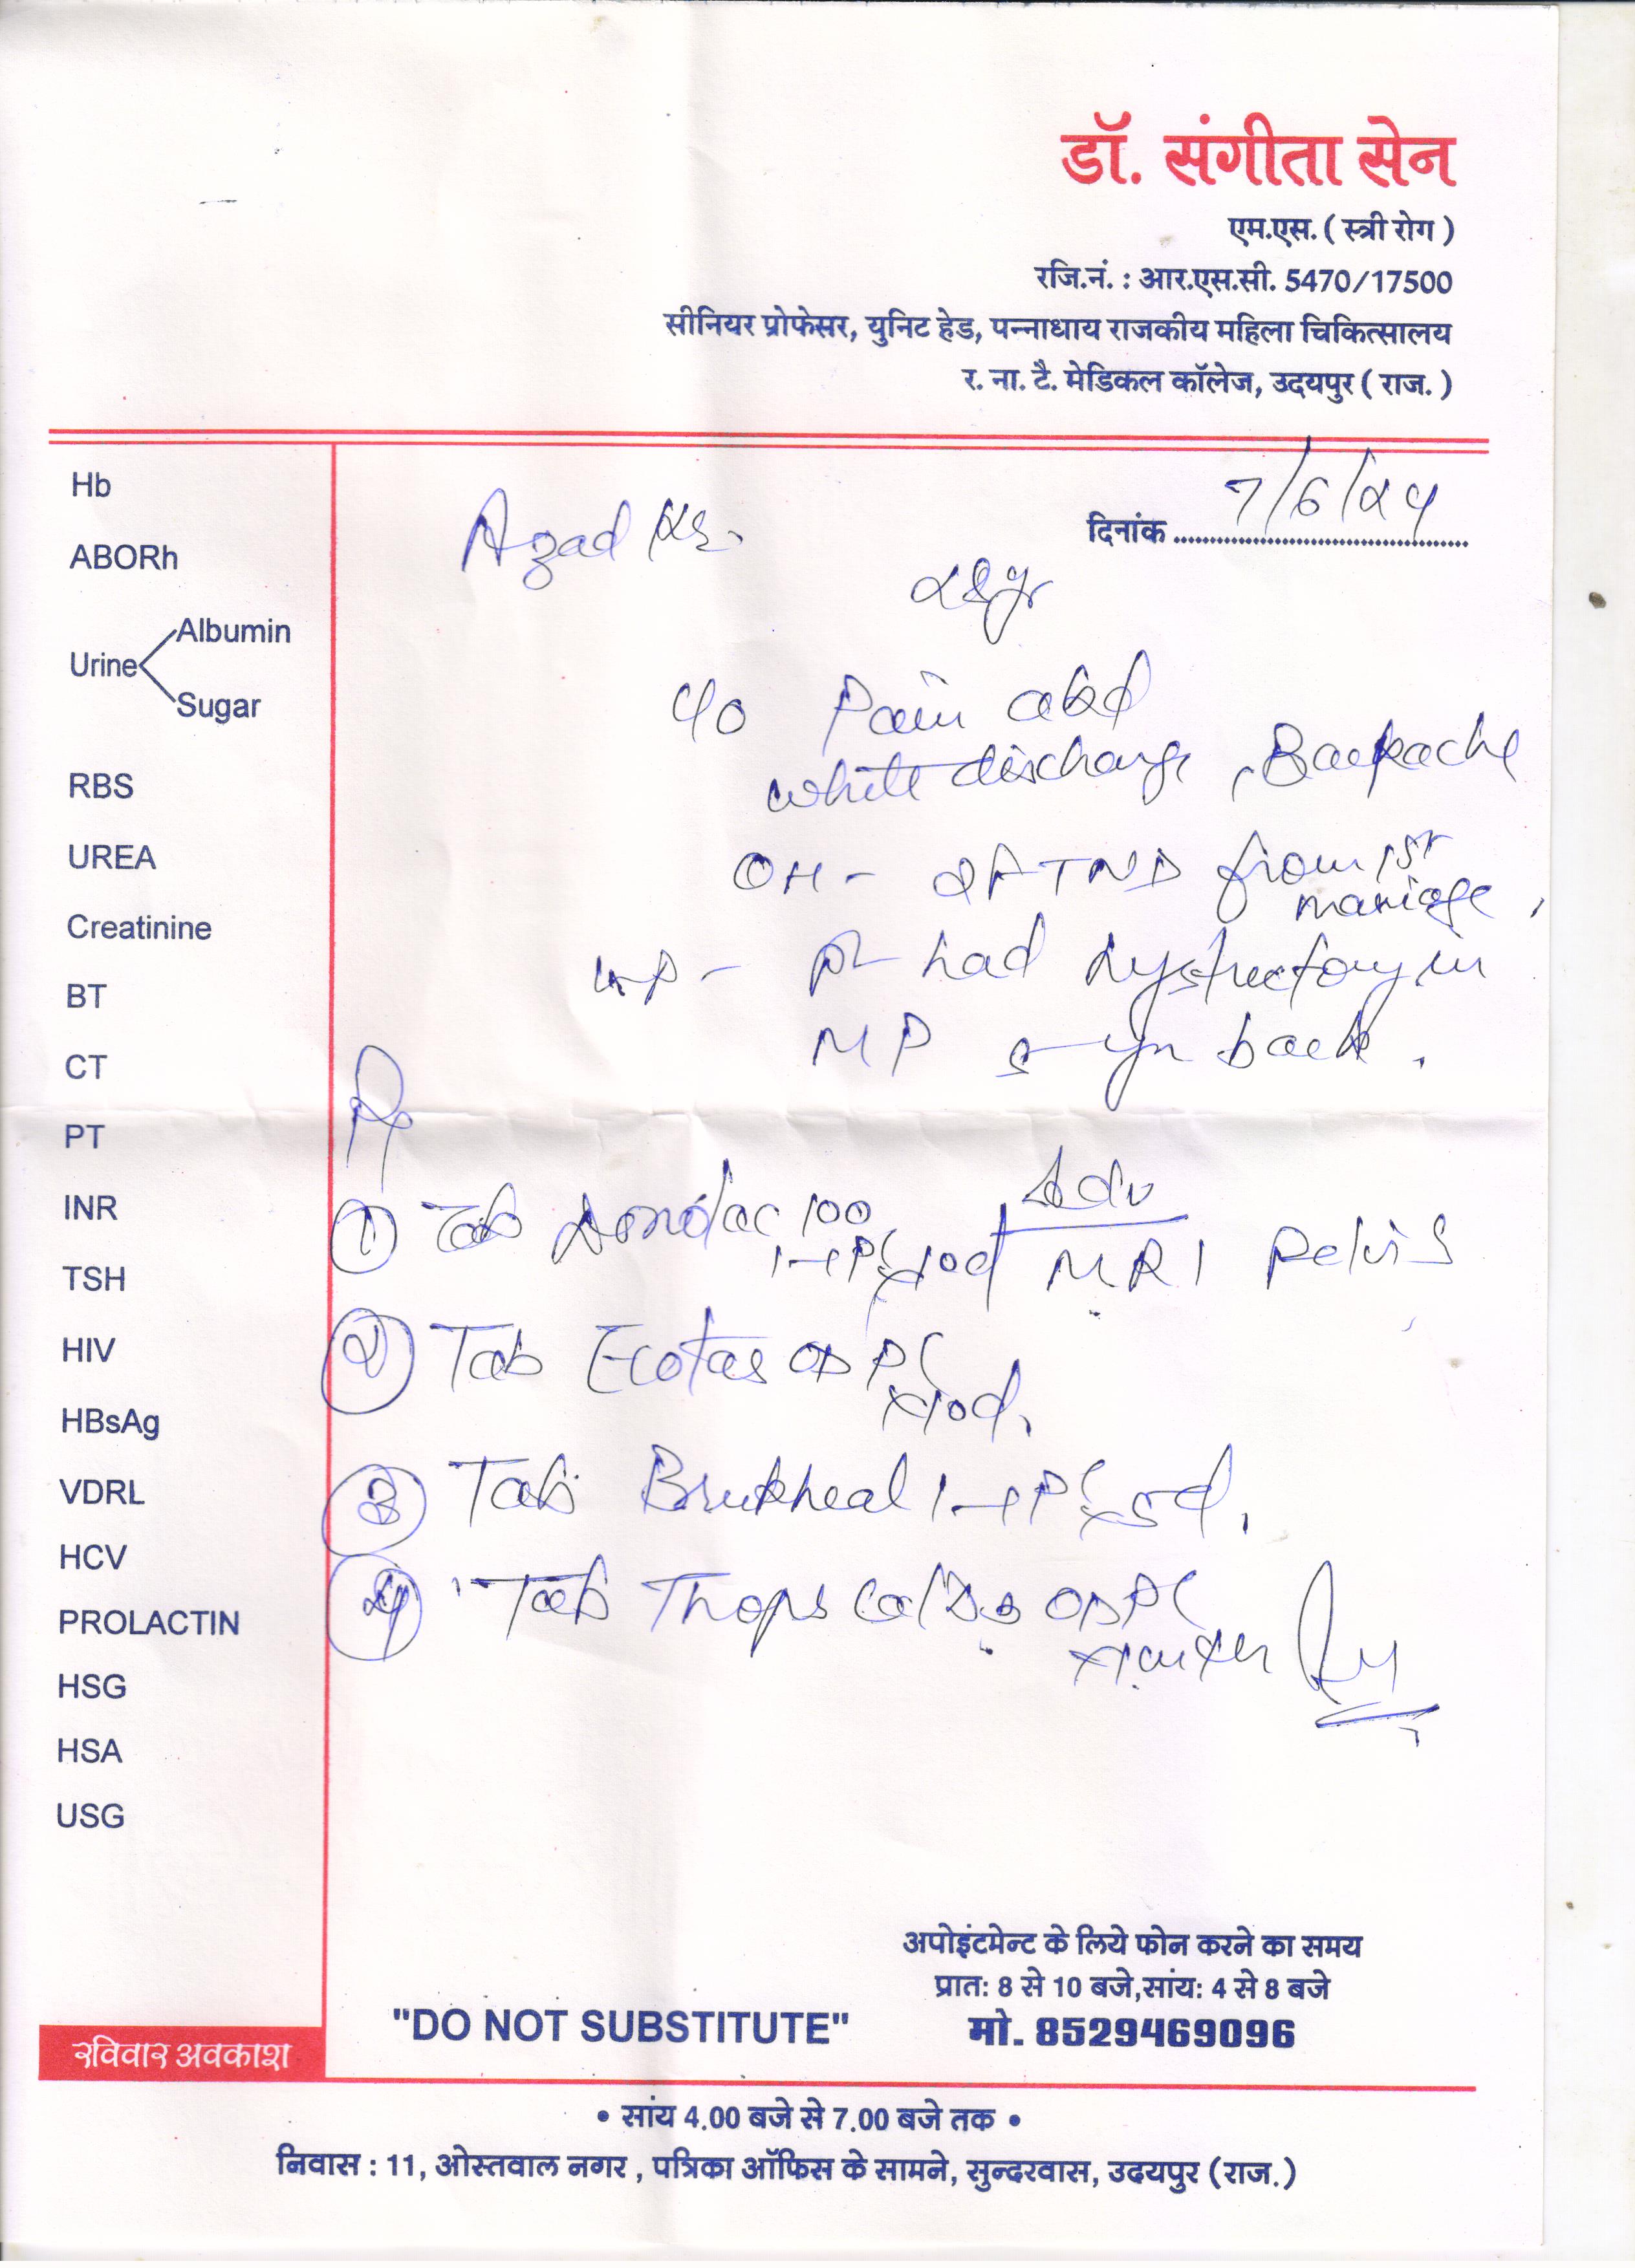 डॉ. संगीता सेन
एम.एस. ( स्त्री रोग )
रजि.नं. : आर.एस.सी. 5470/17500
सीनियर प्रोफेसर, युनिट हेड, पन्नाधाय राजकीय महिला चिकित्सालय
र. ना. टै. मेडिकल कॉलेज, उदयपुर ( राज. )
दिनांक 7/6/24
Azad
Pain abd
white discharge, Backache
OH - 2FTND from 1st
marriage,
had hystrectomy in
MP yr back.
Adv
MRI Pelvis
① Tab 100
② Tab OD PC
x10d.
③ Tab
④ Tab OD PC
Hb
ABORh
Urine
Albumin
Sugar
RBS
UREA
Creatinine
BT
CT
PT
INR
TSH
HIV
HBsAg
VDRL
HCV
PROLACTIN
HSG
HSA
USG
रविवार अवकाश
"DO NOT SUBSTITUTE"
अपोइंटमेन्ट के लिये फोन करने का समय
प्रात: 8 से 10 बजे,सांय: 4 से 8 बजे
मो. 8529469096
• सांय 4.00 बजे से 7.00 बजे तक •
निवास : 11, ओस्तवाल नगर , पत्रिका ऑफिस के सामने, सुन्दरवास, उदयपुर (राज.)